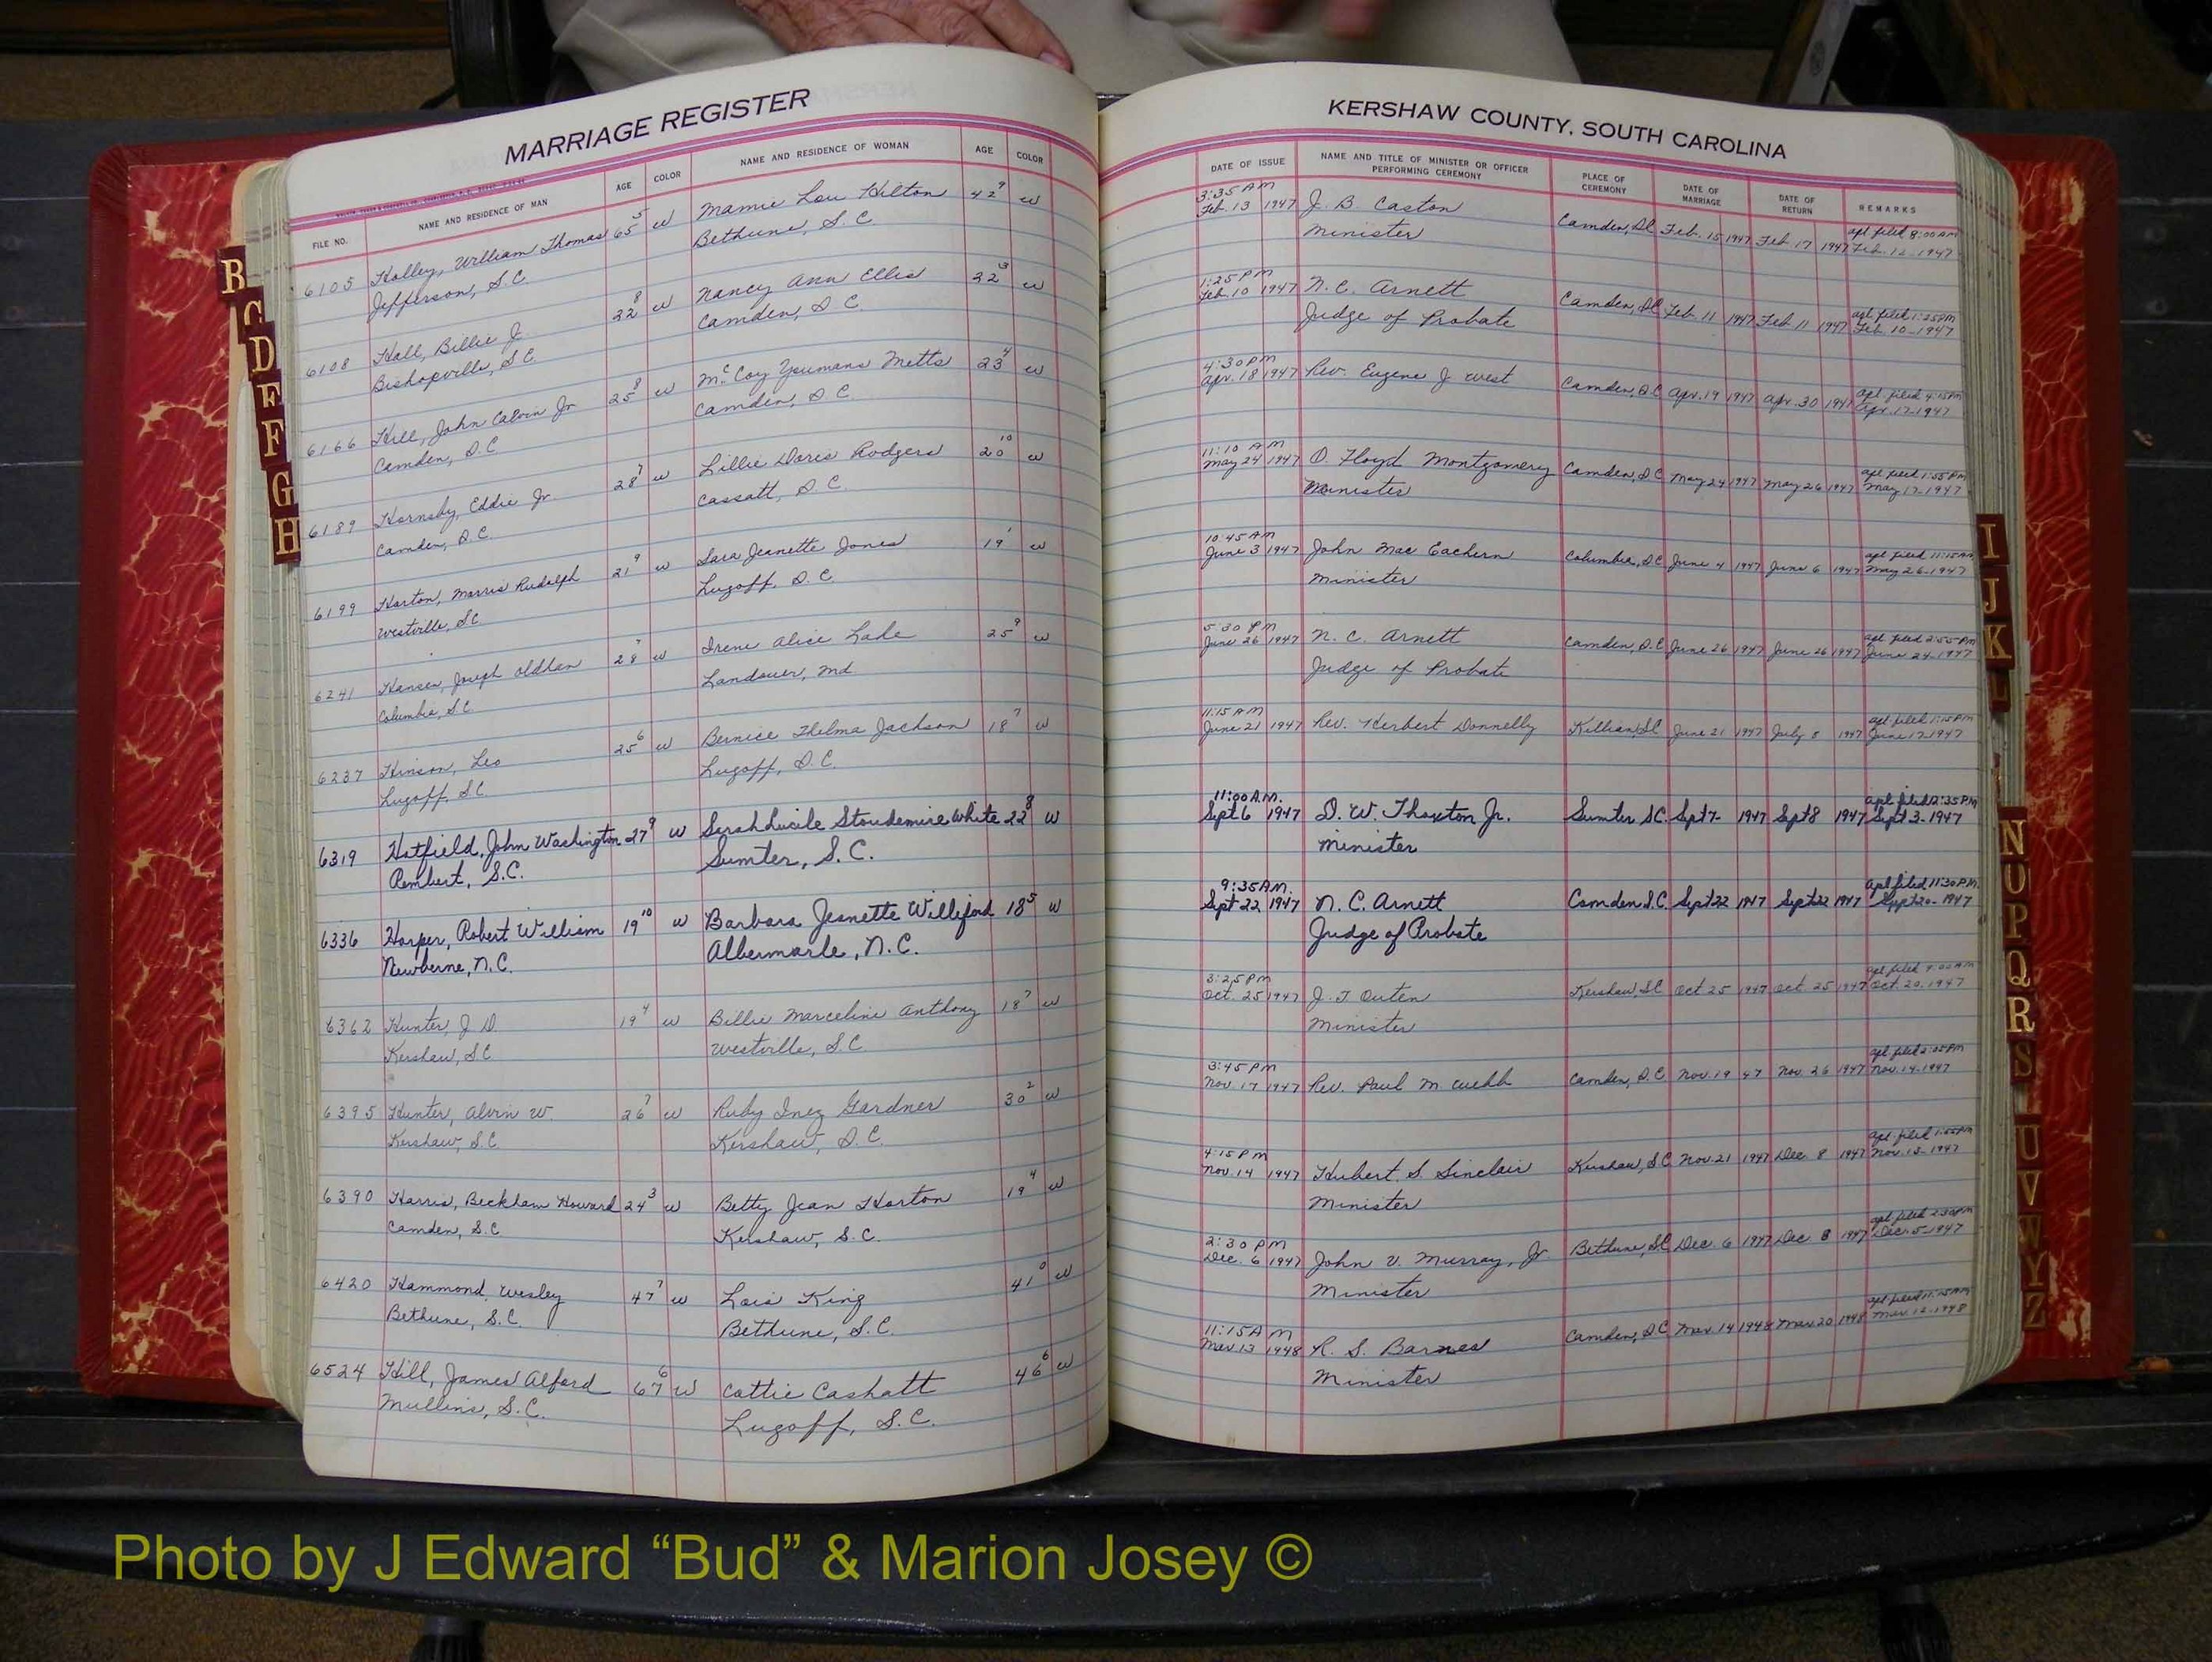 MARRIAGE REGISTER
FILE NO. NAME AND RESIDENCE OF MAN AGE COLOR NAME AND RESIDENCE OF WOMAN AGE COLOR
6105 Holley, William Thomas 65 5 w Mamie Lou Hilton 42 9 w
Jefferson, S.C. Bethune, S.C.
6108 Hall, Billie J. 22 8 w Nancy Ann Ellis 22 3 w
Bishopville, S.C. Camden, S.C.
6166 Hill, John Calvin Jr 25 8 w McCoy Youmans Metts 23 4 w
Camden, S.C. Camden, S.C.
6189 Hornsby, Eddie Jr 28 7 w Lillie Doris Rodgers 20 10 w
Camden, S.C. Cassatt, S.C.
6199 Horton, Morris Rudolph 21 9 w Sara Jeanette Jones 19 1 w
Westville, S.C. Lugoff, S.C.
6241 Hansen, Joseph Oldhan 28 7 w Irene Alice Lake 25 9 w
Columbia, S.C. Landover, Md.
6237 Hinson, Leo 25 6 w Bernice Thelma Jackson 18 7 w
Lugoff, S.C. Lugoff, S.C.
6319 Hatfield, John Washington 27 9 w Sarah Lucile Stoudemire White 22 8 w
Rembert, S.C. Sumter, S.C.
6336 Harper, Robert William 19 10 w Barbara Jeanette Williford 18 5 w
Newberne, N.C. Albermarle, N.C.
6362 Hunter, J D 19 4 w Billie Marceline Anthony 18 7 w
Kershaw, S.C. Westville, S.C.
6395 Hunter, Alvin W. 26 7 w Ruby Inez Gardner 30 2 w
Kershaw, S.C. Kershaw, S.C.
6390 Harris, Beckham Howard 24 3 w Betty Jean Horton 19 4 w
Camden, S.C. Kershaw, S.C.
6420 Hammond, Wesley 47 7 w Lois King 41 0 w
Bethune, S.C. Bethune, S.C.
6524 Hill, James Alford 67 6 w Cattie Cashatt 46 6 w
Mullins, S.C. Lugoff, S.C.
KERSHAW COUNTY, SOUTH CAROLINA
DATE OF ISSUE NAME AND TITLE OF MINISTER OR OFFICER PERFORMING CEREMONY PLACE OF CEREMONY DATE OF MARRIAGE DATE OF RETURN REMARKS
3:35 AM apl. filed 8:00 AM
Feb. 13 1947 J. B. Caston Camden, SC Feb. 15 1947 Feb 17 1947 Feb. 12-1947
Minister
1:25 PM apl. filed 1:25 PM
Feb. 10 1947 N. C. Arnett Camden, SC Feb. 11 1947 Feb 11 1947 Feb. 10-1947
Judge of Probate
4:30 PM apl. filed 4:15 PM
Apr. 18 1947 Rev. Eugene J West Camden, SC Apr. 19 1947 Apr. 30 1947 Apr. 17-1947
11:10 AM apl filed 1:55 PM
May 24 1947 D. Floyd Montgomery Camden, SC May 24 1947 May 26 1947 May 17-1947
Minister
10:45 AM apl filed 11:15 AM
June 3 1947 John Mac Eachern Columbia, SC June 4 1947 June 6 1947 May 26-1947
Minister
5:30 PM apl filed 2:55 PM
June 26 1947 N. C. Arnett Camden, S.C. June 26 1947 June 26 1947 June 24-1947
Judge of Probate
11:15 AM apl filed 1:15 PM
June 21 1947 Rev. Herbert Donnelly Killian, SC June 21 1947 July 8 1947 June 17-1947
11:00 A.M. apl filed 12:35 P.M
Sept 6 1947 D. W. Thoxton Jr. Sumter SC. Sept 7- 1947 Sept 8 1947 Sept 3-1947
Minister
9:35 AM. apl filed 11:30 P.M.
Sept 22 1947 N. C. Arnett Camden S.C. Sept 22 1947 Sept 22 1947 Sept 20-1947
Judge of Probate
3:25 PM apl filed 9:00 AM
Oct. 25 1947 J. T Outen Kershaw, SC Oct 25 1947 Oct. 25 1947 Oct. 20-1947
Minister
3:45 PM apl. filed 2:25 PM
Nov. 17 1947 Rev. Paul M. Webb Camden, S.C Nov. 19 47 Nov. 26 1947 Nov. 14-1947
4:15 PM apl. filed 1:55 PM
Nov. 14 1947 Hubert S. Sinclair Kershaw, SC Nov. 21 1947 Dec. 8 1947 Nov. 13-1947
Minister
2:30 PM apl filed 2:30 PM
Dec. 6 1947 John V. Murray, Jr. Bethune, SC Dec. 6 1947 Dec. 8 1947 Dec. 5-1947
Minister
11:15 AM apl filed 11:15 AM
Mar 13 1948 R. S. Barnes Camden, SC Mar. 14 1948 Mar. 20 1948 Mar. 12-1948
Minister
B
C
D
E
F
G
H
I
J
K
L
N
O
P
Q
R
S
U
V
W
Y
Z
Photo by J Edward “Bud” & Marion Josey ©